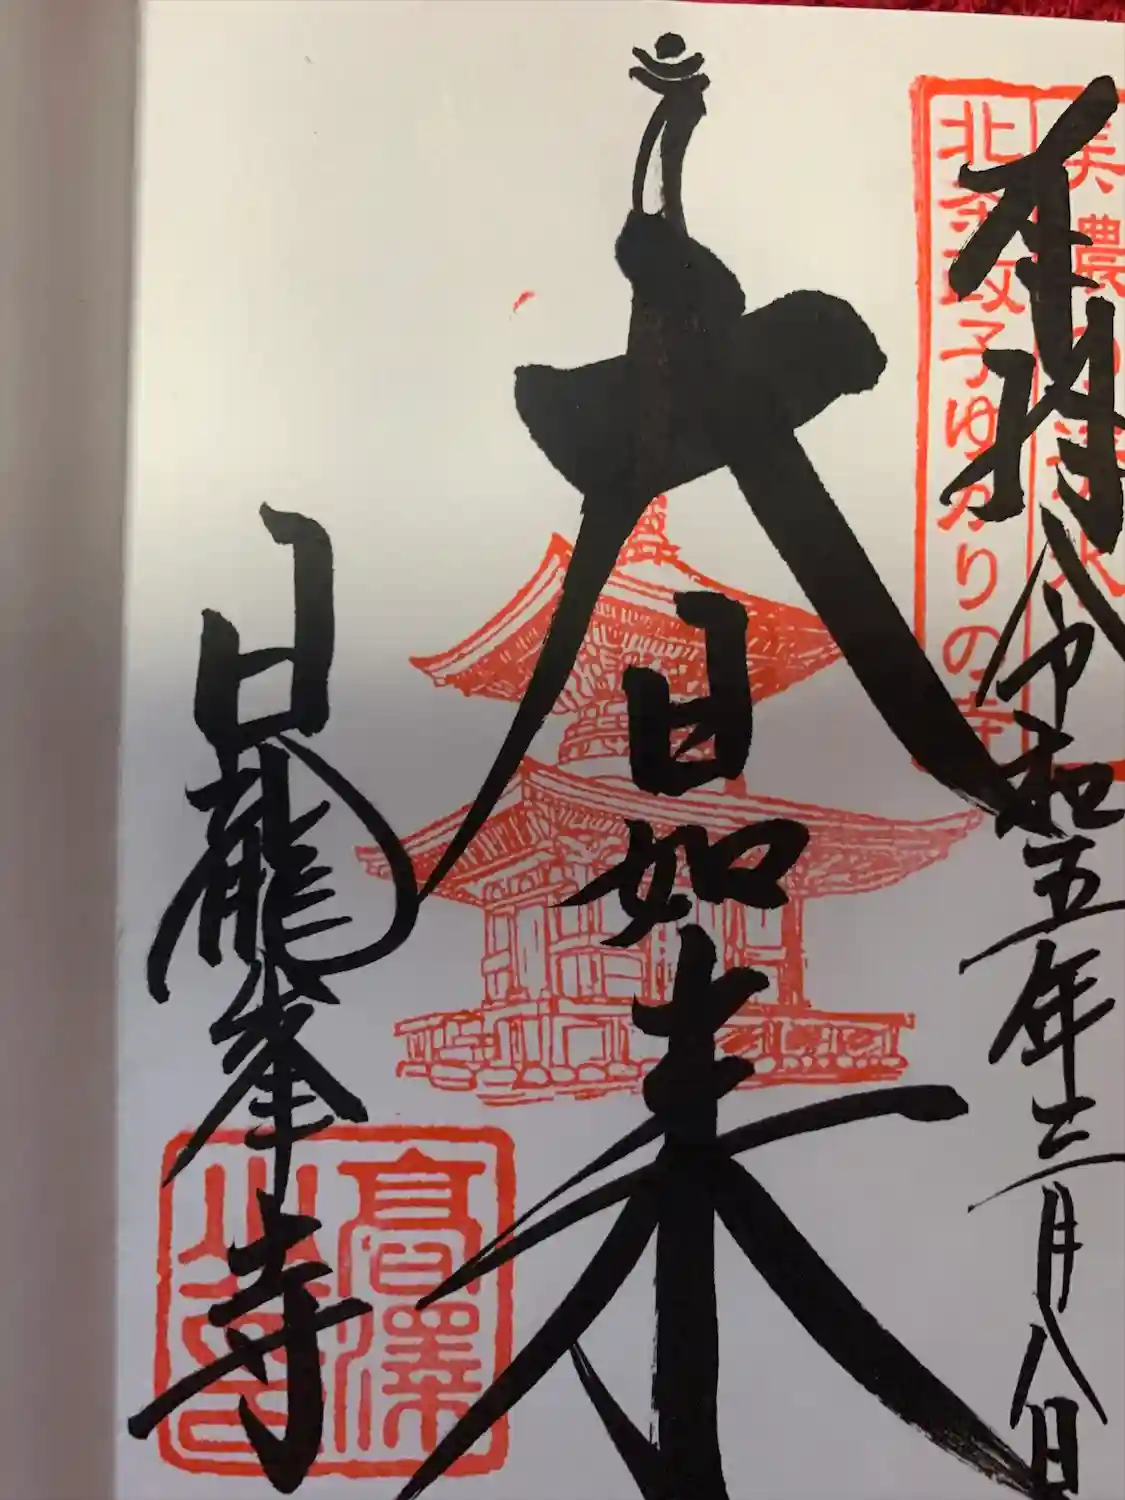 奉拝
令和五年三月八日
美濃の清水
北条政子ゆかりの寺
大日如来
日龍峯寺
高澤山印